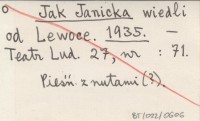 o Jak Janicka wiedli
od Lewoce. 1935. —
Teatr Lud. 27, nr : 71.
Pieśń z nutami (?).
BS/022/0606